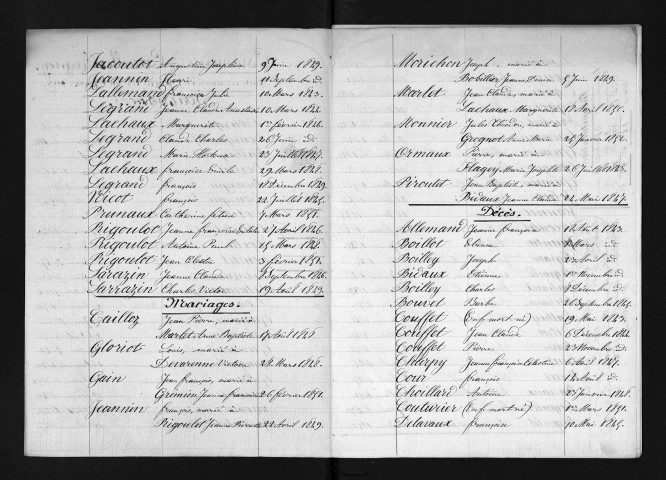 Jacoulot Augustin Joséphine 9 Juin 1849.
Jeannin Henri 11 Septembre id
Lallemand françoise Julie 10 Mars 1843.
Legrand Jeanne Claude Anastasie 10 Mars 1844.
Lachaux Marguerite 1er février 1846.
Legrand Claude Charles 26 Juin id
Legrand Marie Hortense 23 Juillet 1847.
Lachaux françoise Emile 29 Mars 1848.
Legrand françois 18 Décembre 1849.
Nicot françois 22 Juillet 1845.
Prunaux Catherine 7 Mars 1851.
Rigoulot Jeanne françoise 27 Avril 1846.
Rigoulot Antoine Paul 15 Mars 1848.
Rigoulot Jean 3 février 1851.
Sarazin Jeanne Claudine Septembre 1846.
Sarrazin Charles Victor 19 Août 1849.
Mariages.
Cailloz Jean Pierre, marié à
Marlet Anne Baptiste 17 Août 1848.
Gloriot Louis, marié à
Devarenne 28 Mars 1848.
Gain Jean françois, marié à
Grimion Jeanne françoise 26 février 1851.
Jeannin françois, marié à
Rigoulot Jeanne Pierrette 22 Avril 1849.
Morichon Joseph, marié à
Bobillier Jeanne Louise 5 Juin 1849.
Marlet Jean Claude, marié à
Lachaux Marguerite 18 Avril 1850.
Monnier Jules Théodore, marié à
Grognot Anne Marie 25 Janvier 1852.
Ormaux Pierre, marié à
Flagey Marie Josephte 26 Juillet 1843.
Piroulot Jean Baptiste, marié à
Bidaux Jeanne Claudine 24 Mai 1847.
Décès.
Allemand Jeanne françoise Août 1843.
Boillot Etienne Mars id
Boilley Joseph 23 Avril id.
Bidaux Etienne 1er Novembre id
Boilley Charles Décembre id.
Bouvet Barbe 26 Septembre 1845.
Couffet (Enf. mort né) 19 Mai 1843.
Couffet Jean Claude 6 Décembre 1844.
Couffet Pierre 23 Novembre id.
Cherpy Jeanne françoise Célestine 6 Août 1847.
Cour françois 12 Août id.
Choillard Antoine 25 Janvier 1848.
Couturier (Enf mort né) 1er Mars 1851.
Delavaux françoise 10 Mai 1845.